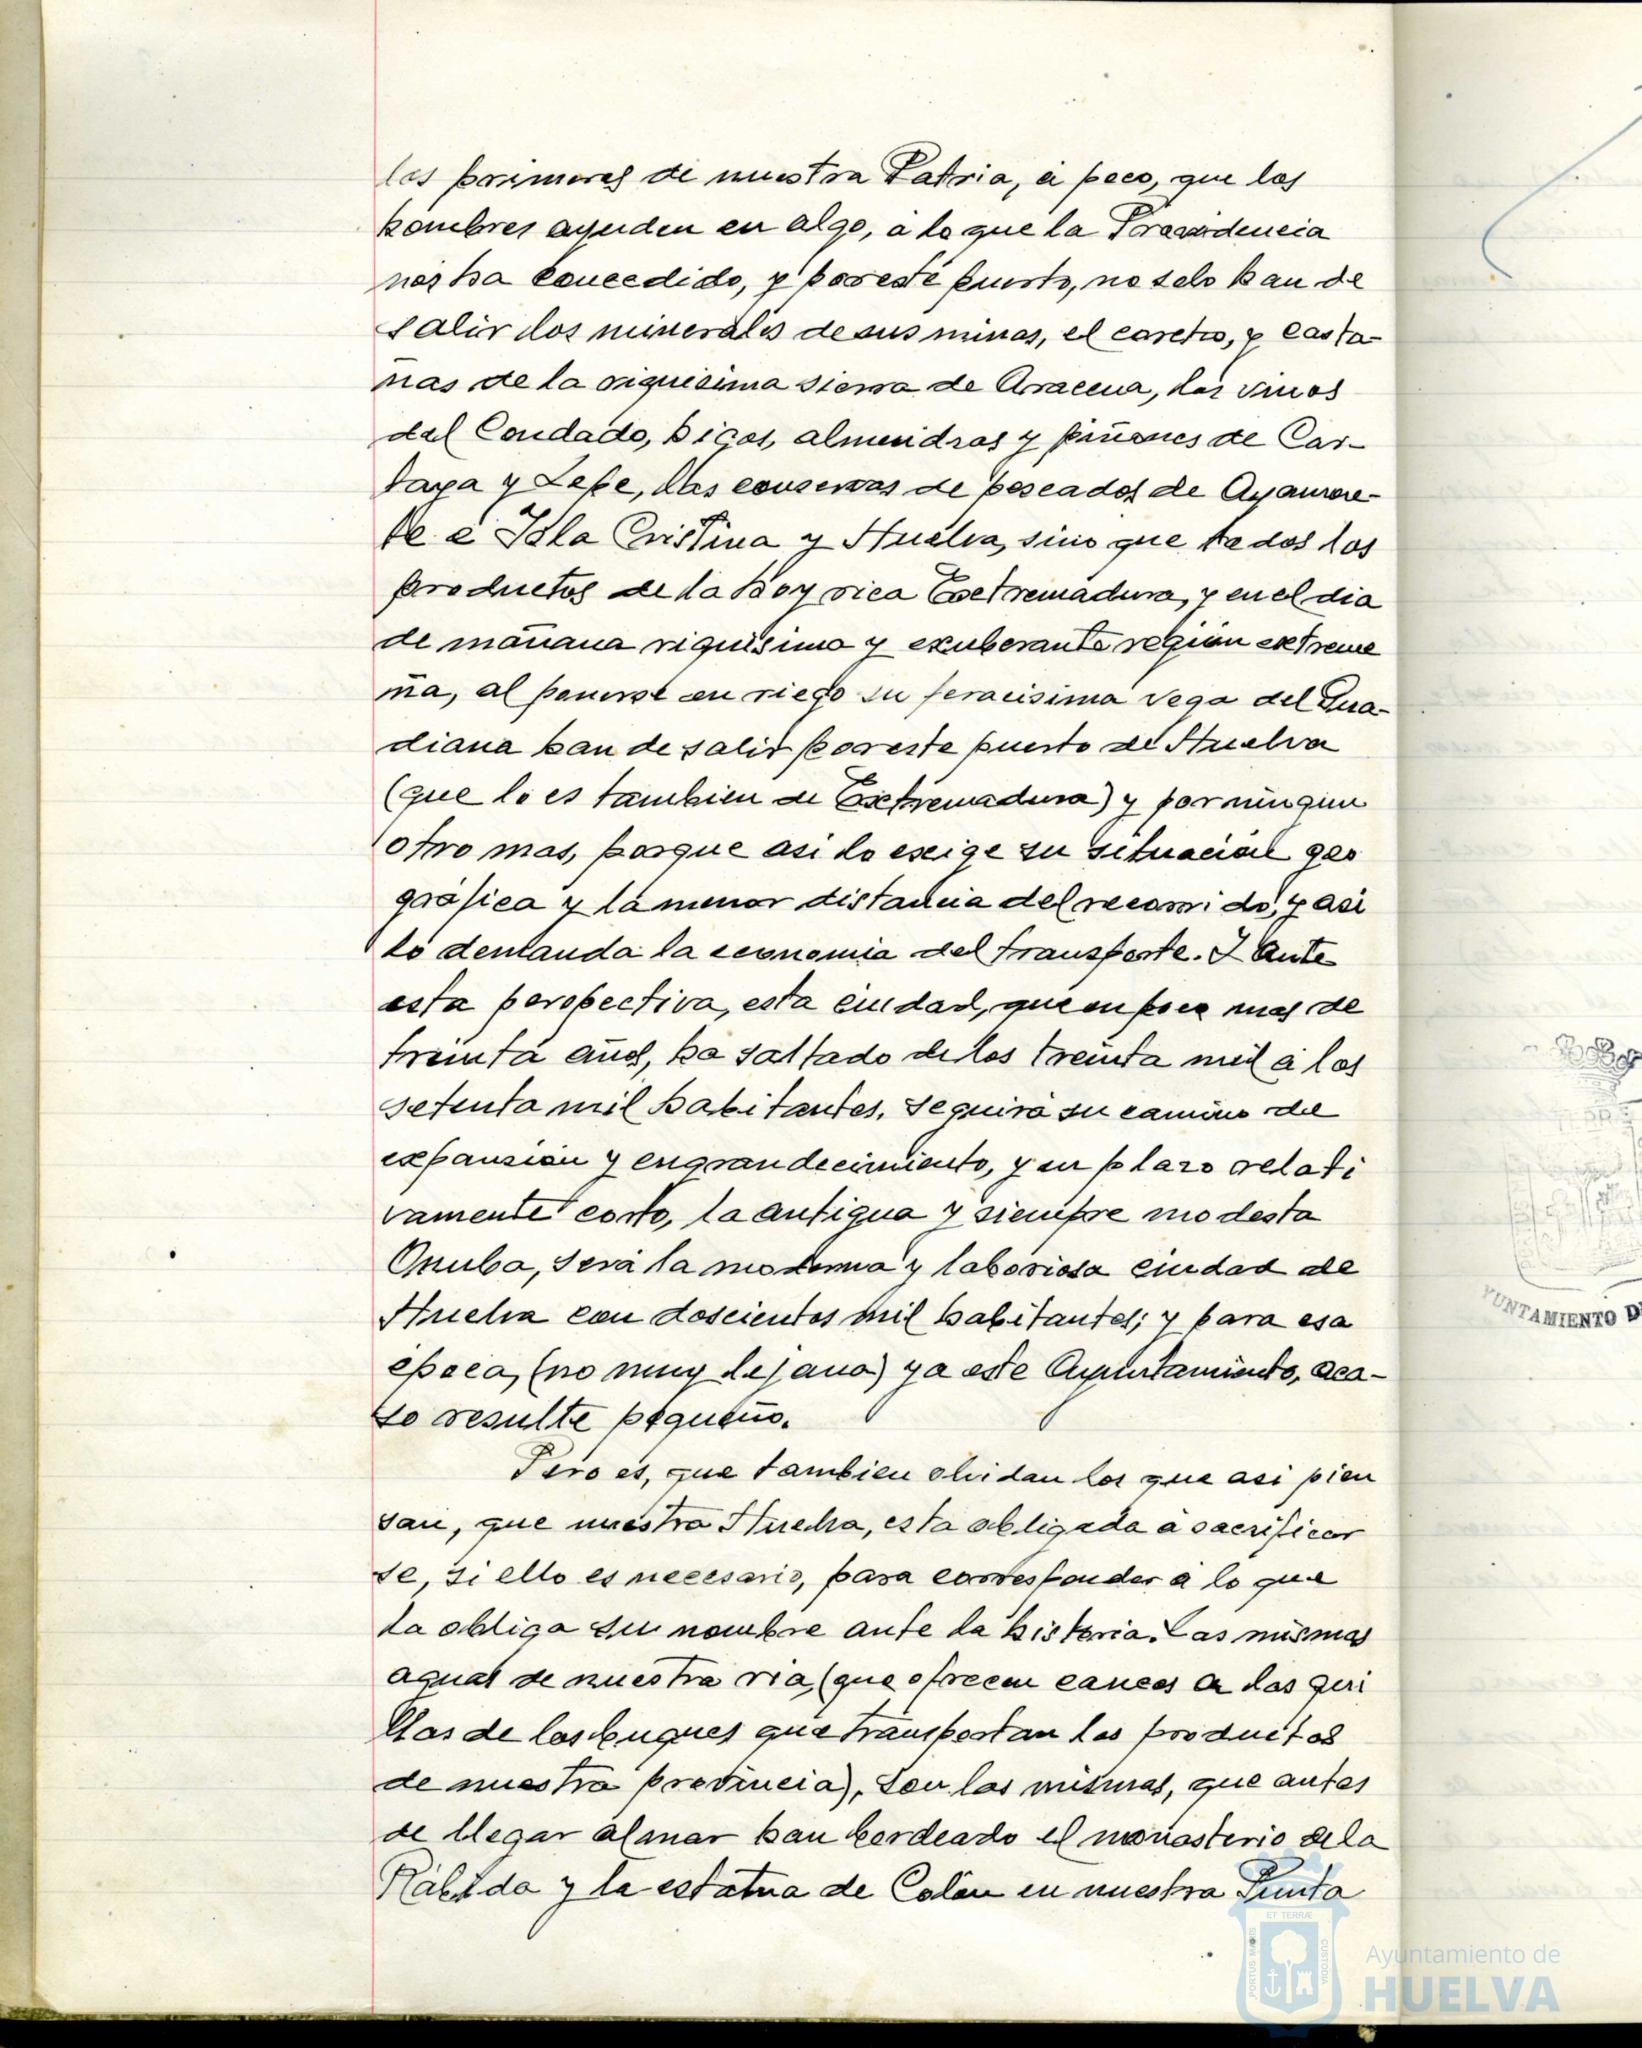 los primeros de nuestra Patria, á poco, que los
hombres ayuden en algo, a lo que la Providencia
nos ha concedido, y por este puerto, no solo han de
salir los minerales de sus minas, el corcho, y casta-
ñas de la riquisima sierra de Aracena, los vinos
del Condado, higos, almendras y piñones de Car-
taya y Lepe, las conservas de pescados de Ayamon-
te e Isla Cristina y Huelva, sino que todos los
productos de la hoy rica Extremadura, y en el dia
de mañana riquisima y exuberante región extreme
ña, al ponerse en riego su feracisima vega del Gua-
diana han de salir por este puerto de Huelva
(que lo es tambien de Extremadura) y por ningun
otro mas, porque asi lo exige su situación geo
gráfica y la menor distancia del recorrido, y asi
lo demanda la economia del transporte. Y ante
esta perspectiva, esta ciudad, que en poco mas de
treinta años, ha saltado de los treinta mil á los
setenta mil habitantes, seguirá su camino de
expansión y engrandecimiento, y en plazo relati
vamente corto, la antigua y siempre modesta
Onuba, será la moderna y laboriosa ciudad de
Huelva con doscientos mil habitantes; y para esa
época, (no muy lejana) ya este Ayuntamiento, aca-
so resulte pequeño.
Pero es, que tambien olvidan los que asi pien
san, que nuestra Huelva, esta obligada á sacrificar
se, si ello es necesario, para corresponder á lo que
la obliga su nombre ante la historia. Las mismas
aguas de nuestra ria, (que ofrecen cauces a las qui
llas de los buques que transportan los productos
de nuestra provincia), son las mismas, que antes
de llegar al mar han bordeado el monasterio de la
Rábida y la estatua de Colón en nuestra Punta
YUNTAMIENTO D
ET TERRÆ
PORTUS MARIS
CUSTODIA
Ayuntamiento de
HUELVA